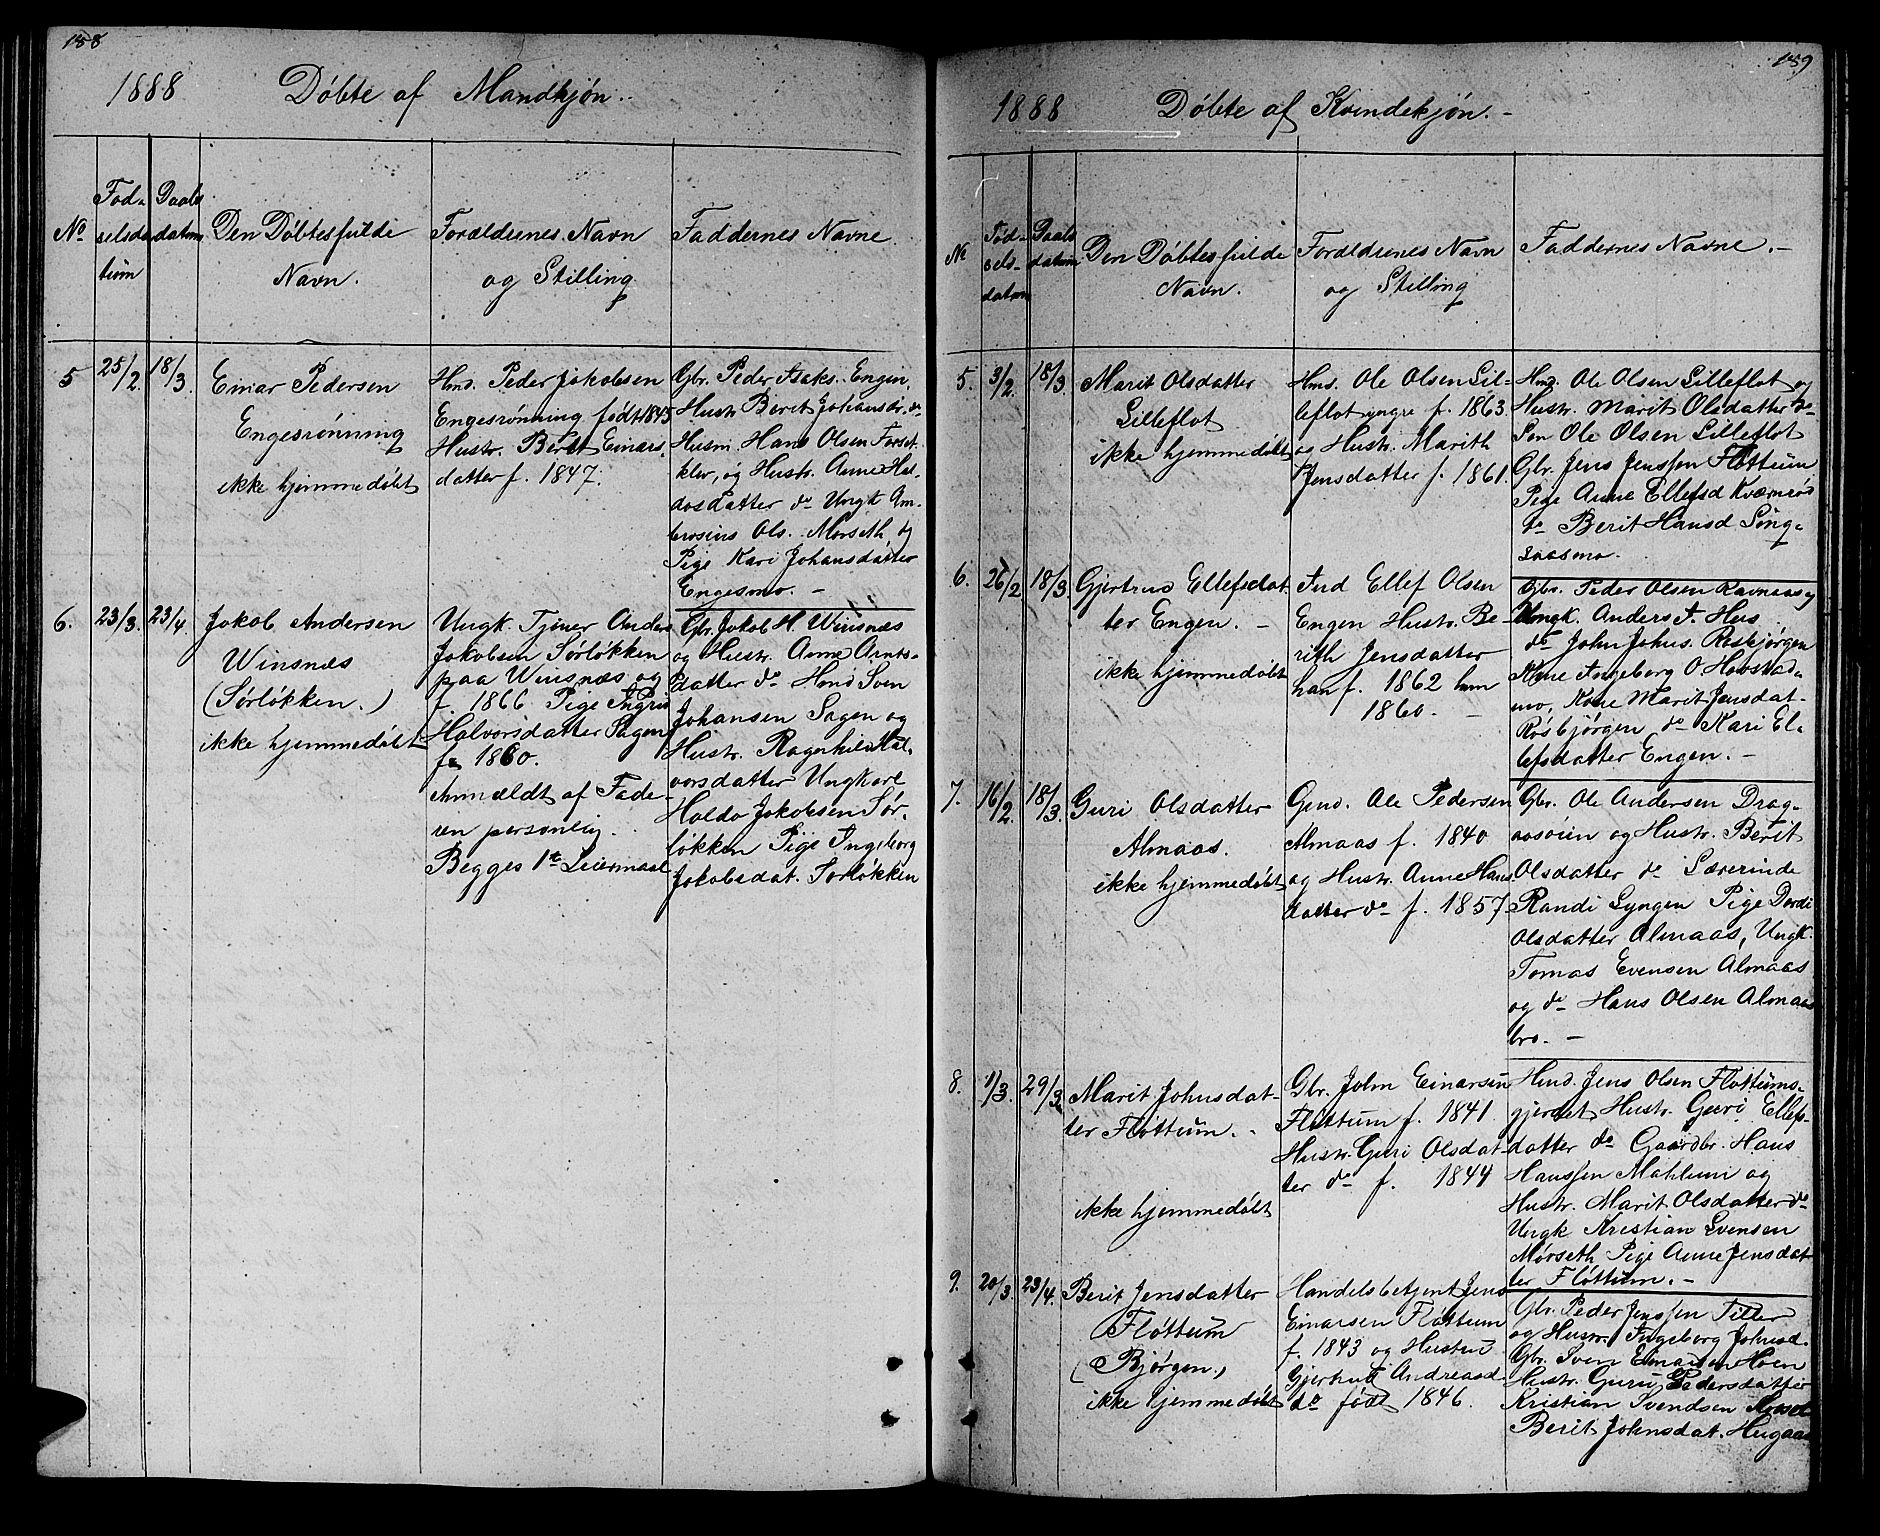 158
1888 Döbte af Mandkjön.
No
Föd-
selsda
tum
Daabs
datum
Den Döbtes fulde
Navn.
Forældrenes Navn
og Stilling
Faddernes Navne.
5 25/2. 18/3.
Einar Pedersen
Engesrönning
ikke hjemmedöbt
Hmd. Peder Jakobsen
Engesrönning född 1843
Hustr. Berit Einars.
datter f. 1847.
Gbr. Peder Isaks. Engen,
Hustr Berit Johansdr. do
Husm. Hans Olsen Forset
kler, og Hustr. Anne Hal-
dosdatter do Ungk Am-
brosius Ols. Morseth, og
Pige Kari Johansdatter
Engesmo. –
6. 23/3. 23/4.
Jakob Andersen
Winsnæs
(Sörlökken.)
ikke hjemmedöbt
Ungk. Tjener Anders
Jakobsen Sörlökken
paa Winsnæs og
f. 1866 Pige Ingrid
Halvorsdatter Sagen
f. 1860.
Anmældt af Fade-
ren personlig.
Begges 1te Leiermaal
Gbr. Jakob H. Winsnæs
og Hustr. Anne Arnts-
datter do Hmd Sven
Johansen Sagen og
Hustr. Ragnhild Hal-
vorsdatter Ungkarl
Haldo Jakobsen Sör-
lökken Pige Ingeborg
Jakobsdat. Sörlökken
159
1888 Döbte af Kvindekjön. –
No
Föd-
sels-
datum
Daabs
datum
Den Döbtes fulde
Navn.
Forældrenes Navn
og Stilling
Faddernes Navne. –
5. 3/2. 18/3.
Marit Olsdatter
Lilleflot
ikke hjemmedöbt
Hms. Ole Olsen Lil-
leflot yngre f. 1863.
og Hustr. Marith
Jensdatter f. 1861.
Hmd. Ole Olsen Lilleflot og
Hustr. Marit Olsdatter do
Sön Ole Olsen Lilleflot
Gbr. Jens Jenssen Flöttum
Pige Anne Ellefsd Kværnröd
do Berit Hansd Sing-
saasmo.
6. 26/2 18/3.
Gjertrud Ellefsdat
ter Engen. –
ikke hjemmedöbt
Ind Ellef Olsen
Engen Hustr. Be-
rith Jensdatter
han f. 1862 hun
1860. –
Gbr. Peder Olsen Ravnaas og
Ungk. Anders A. Hus
do John Johns. Rösbjörgen
Kone Ingeborg O. Hovstad-
mo, Kone Marit Jensdat-
Rösbjörgen do Kari El-
lefsdatter Engen. –
7. 16/2. 18/3.
Guri Olsdatter
Almaas.
ikke hjemmedöbt
Gmd. Ole Pedersen
Almaas f. 1840
og Hustr. Anne Hans
datter do f. 1857
Gbr. Ole Andersen Drag-
aasöien og Hustr. Berit
Olsdatter do Lærerinde
Randi Lyngen Pige Dordi
Olsdatter Almaas, Ungk.
Tomas Evensen Almaas
og do Hans Olsen Almaas
bro. –
8. 1/3. 29/3.
Marit Johnsdat-
ter Flöttum.
ikke hjemmedöbt
Gbr. John Einarsen
Flöttum f. 1841
Hustr. Guri Olsdat-
ter do f. 1844
Hmd. Jens Olsen Flöttums-
gjerdet Hustr. Guri Ellefs
datter do Gaardbr. Hans
Hanssen Mahlum og
Hustr. Marit Olsdatter do
Ungk Kristian Svensen
Mörseth Pige Anne Jensdat
ter Flöttum. –
9. 20/3. 23/4.
Berit Jensdatter
Flöttum
(Bjørgen.)
ikke hjemmedöbt
Handelsbetjent Jens
Einarsen Flöttum
f. 1843 og Hustru
Gjertrud Andreasd
do född 1846.
Gbr. Peder Jenssen Tiller
og Hustr. Ingeborg Johnsd.
Gbr. Sven Einarsen Hoen
Hustr. Guru Pedersdatter
Kristian Svendsen
Berit Johnsdat. Haugaas